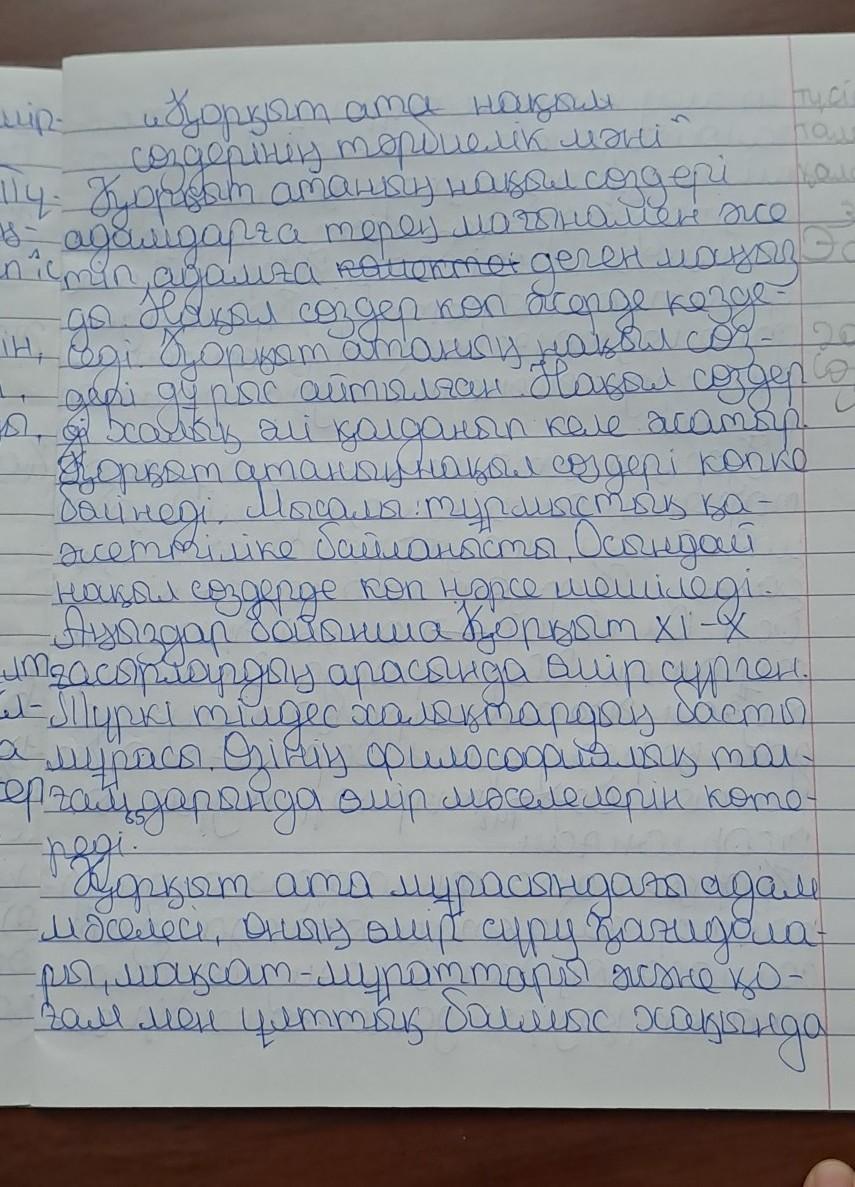 „Қорқыт ата нақыл
сөздерінің тәрбиелік мәні"
Қорқыт атаның нақыл сөздері
адамдарға терең мағынамен же
тіп, адамға деген маңыз
ды. Нақыл сөздер көп жерде кезде-
седі. Қорқыт атаның нақыл сөз-
дері дұрыс айтылған. Нақыл сөздер
ді халық әлі қолданып келе жатыр.
Қорқыт атаның нақыл сөздері көпке
бейнеді. Мысалы: тұрмыстық қа-
жеттіліке байланысты. Осындай
нақыл сөздерде көп нәрсе шешіледі.
Аңыздар бойынша Қорқыт XI-X
ғасырлардың арасында өмір сүрген.
Түркі тілдес халықтардың басты
мұрасы. Өзінің философиялық тол-
ғаңдарында өмір мәселелерін көте-
реді.
Қорқыт ата мұрасындағы адам
мәселесі, оның өмір сүру қағидала-
ры, мақсат-мұраттары және қо-
ғам мен ұлттық болмыс хақында